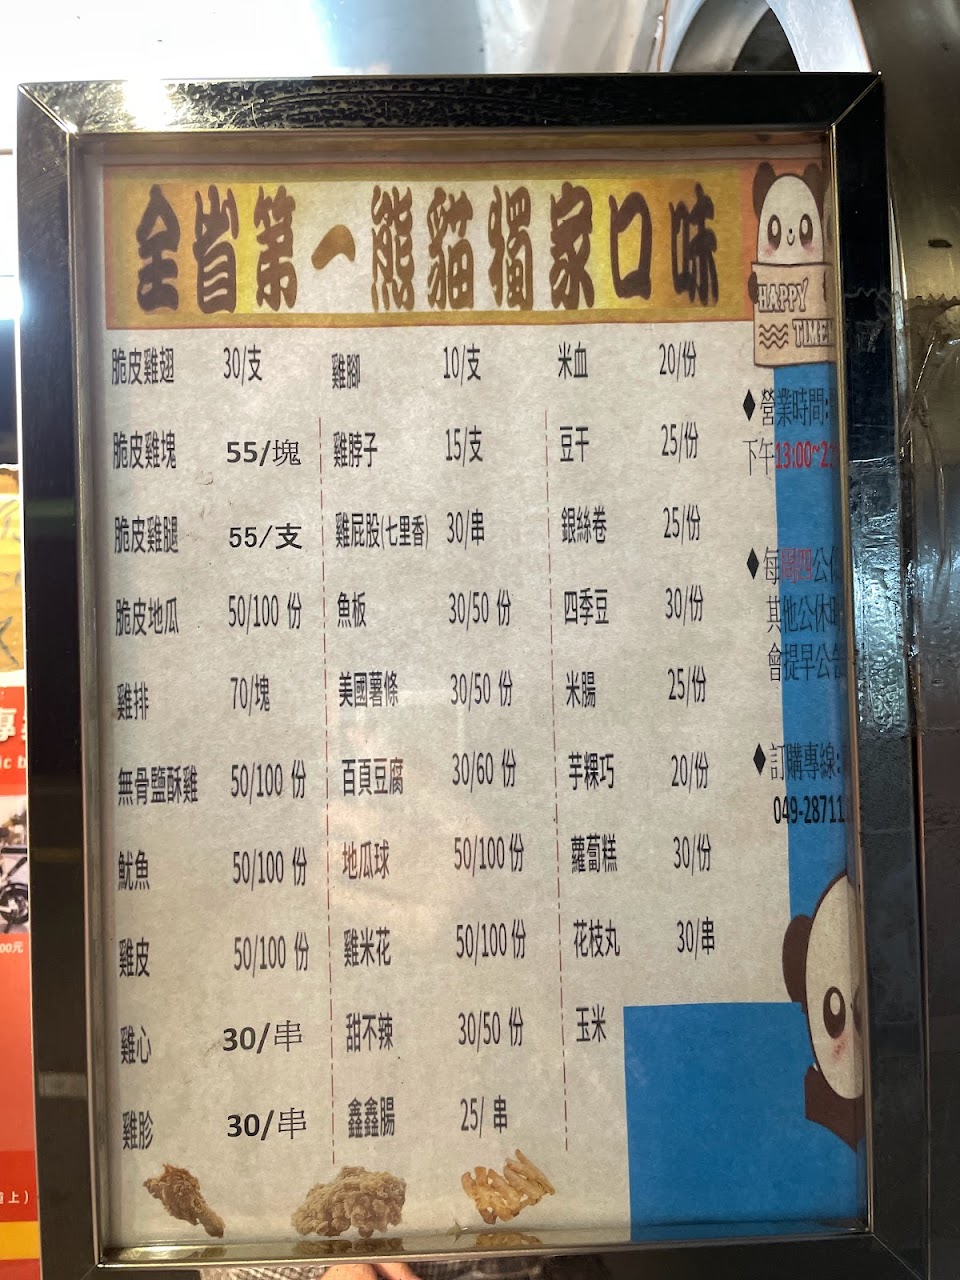 全省第一熊貓獨家口味
HAPPY
TIME!
脆皮雞翅 30/支
脆皮雞塊 55/塊
脆皮雞腿 55/支
脆皮地瓜 50/100 份
雞排 70/塊
無骨鹽酥雞 50/100 份
魷魚 50/100 份
雞皮 50/100 份
雞心 30/串
雞胗 30/串
雞腳 10/支
雞脖子 15/支
雞屁股(七里香) 30/串
魚板 30/50 份
美國薯條 30/50 份
百頁豆腐 30/60 份
地瓜球 50/100 份
雞米花 50/100 份
甜不辣 30/50 份
鑫鑫腸 25/ 串
米血 20/份
豆干 25/份
銀絲卷 25/份
四季豆 30/份
米腸 25/份
芋粿巧 20/份
蘿蔔糕 30/份
花枝丸 30/串
玉米
♦營業時間:
下午13:00~2
♦每周四公
其他公休
會提早公告
♦訂購專線:
049-28711
00元
道上)